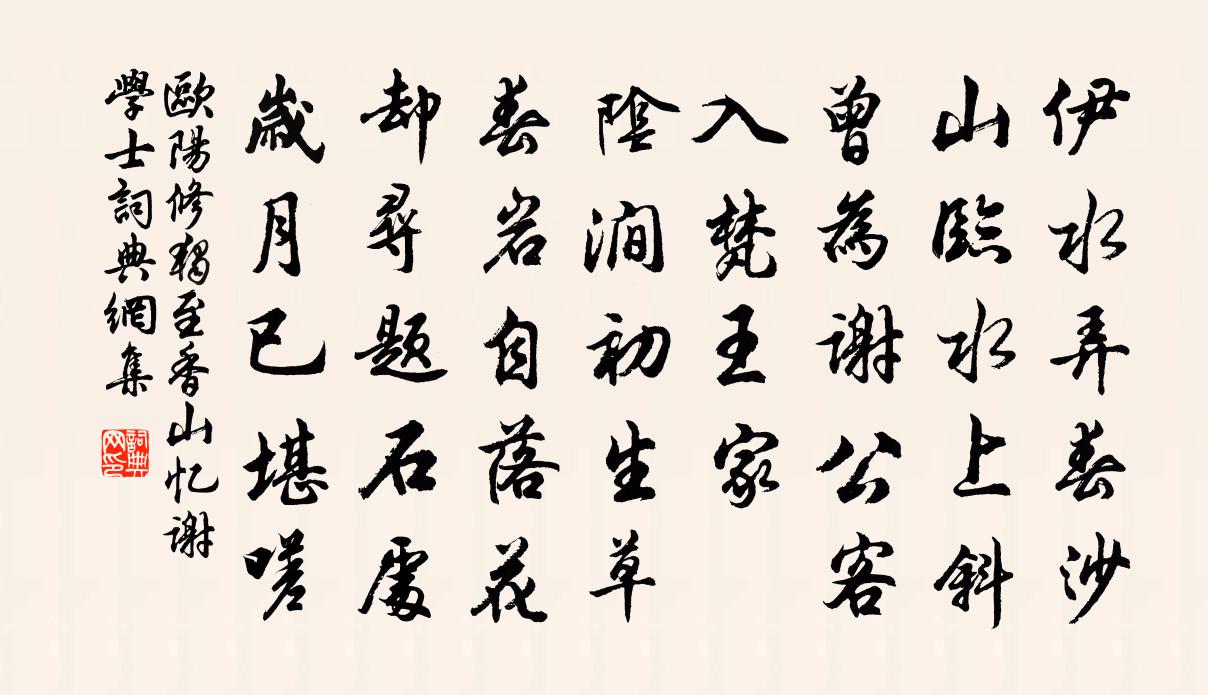 伊水弄春沙
山臨水上斜
曾為謝公客
入梵王家
陰澗初生草
春岩自落花
却尋題石處
歲月已堪嗟
歐陽修獨至香山忆谢
學士詞典網集
詞典網印